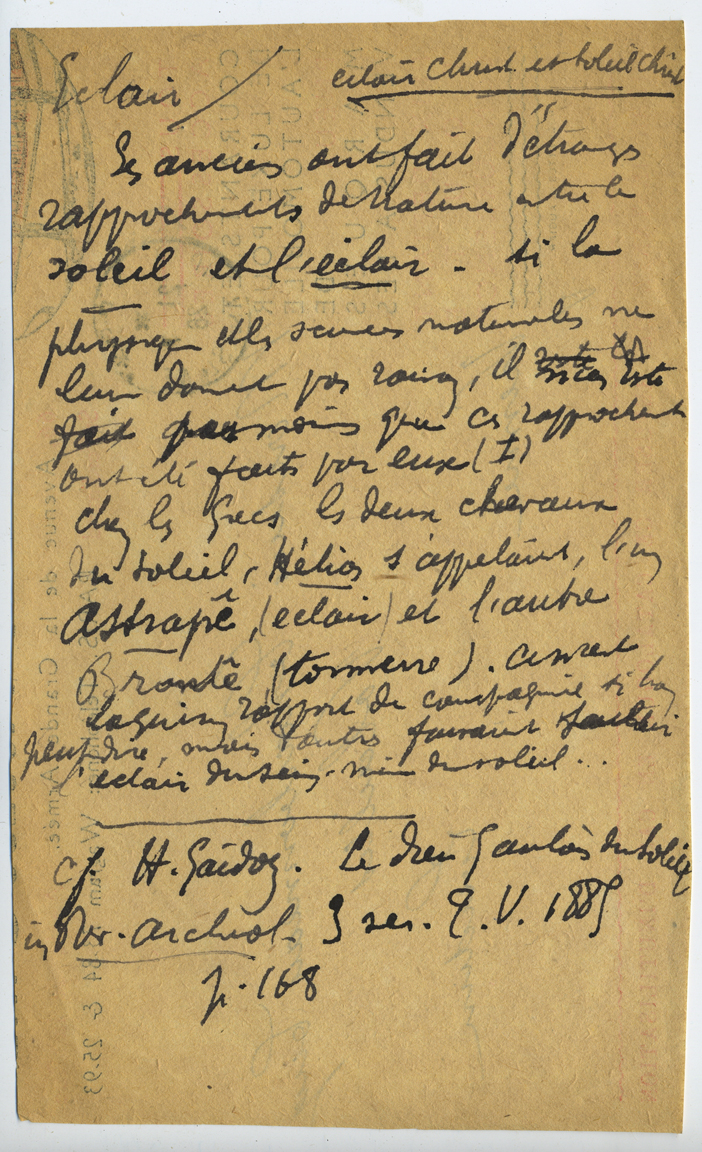 Eclair / eclair Christ et soleil Christ
Les anciens ont fait d'étranges
rapprochements de nature entre le
soleil et l'éclair - si la
physique et les sciences naturelles ne
leur donnent pas raison, il
fait pas moins que ces rapprochements
ont été faits par eux (I)
chez les Grecs les deux chevaux
du soleil, Hélios s'appelaient, l'un
Astrapê, (eclair) et l'autre
Brontê (tonnerre). 
rapport de compagnie si l'on
peut dire, mais d'autres faisaient
l'eclair du sein même du soleil...
cf. H. Gaidoz. Le dieu Gaulois du Soleil
in Rev. Archéol. 3 ser. T. V. 1885
p. 168